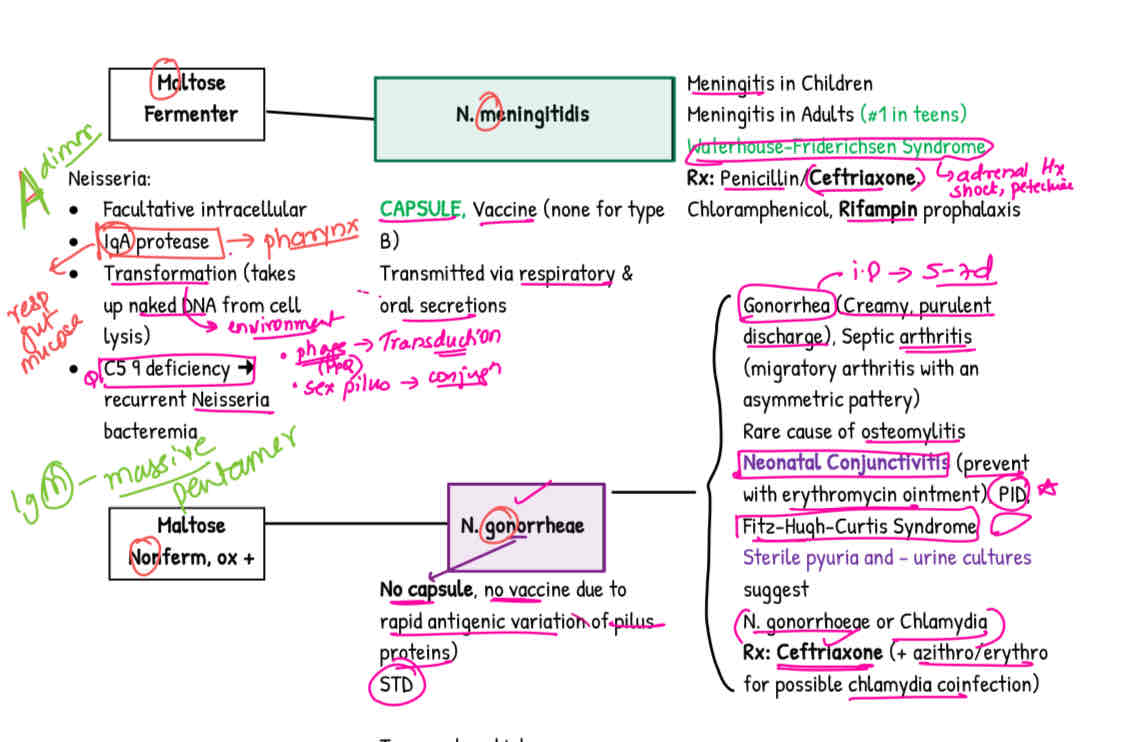 Maltose
Fermenter
N. meningitidis
Meningitis in Children
Meningitis in Adults (#1 in teens)
Waterhouse-Friderichsen Syndrome
adrenal Hx
shock, petechiae
Rx: Penicillin/Ceftriaxone,
Chloramphenicol, Rifampin prophalaxis
A dimer
Neisseria:
• Facultative intracellular
• IgA protease → pharynx
resp
gut
mucosa
• Transformation (takes
up naked DNA from cell
lysis)
environment
• phage → Transduction
• sex pilus →
• C5 9 deficiency →
recurrent Neisseria
bacteremia
IgM - massive
pentamer
CAPSULE, Vaccine (none for type
B)
Transmitted via respiratory &
oral secretions
Maltose
Nonferm, ox +
N. gonorrheae
No capsule, no vaccine due to
rapid antigenic variation of pilus
proteins)
STD
i.p → 5-7d
Gonorrhea (Creamy, purulent
discharge), Septic arthritis
(migratory arthritis with an
asymmetric pattery)
Rare cause of osteomylitis
Neonatal Conjunctivitis (prevent
with erythromycin ointment) PID,
Fitz-Hugh-Curtis Syndrome
Sterile pyuria and - urine cultures
suggest
N. gonorrhoege or Chlamydia
Rx: Ceftriaxone (+ azithro/erythro
for possible chlamydia coinfection)